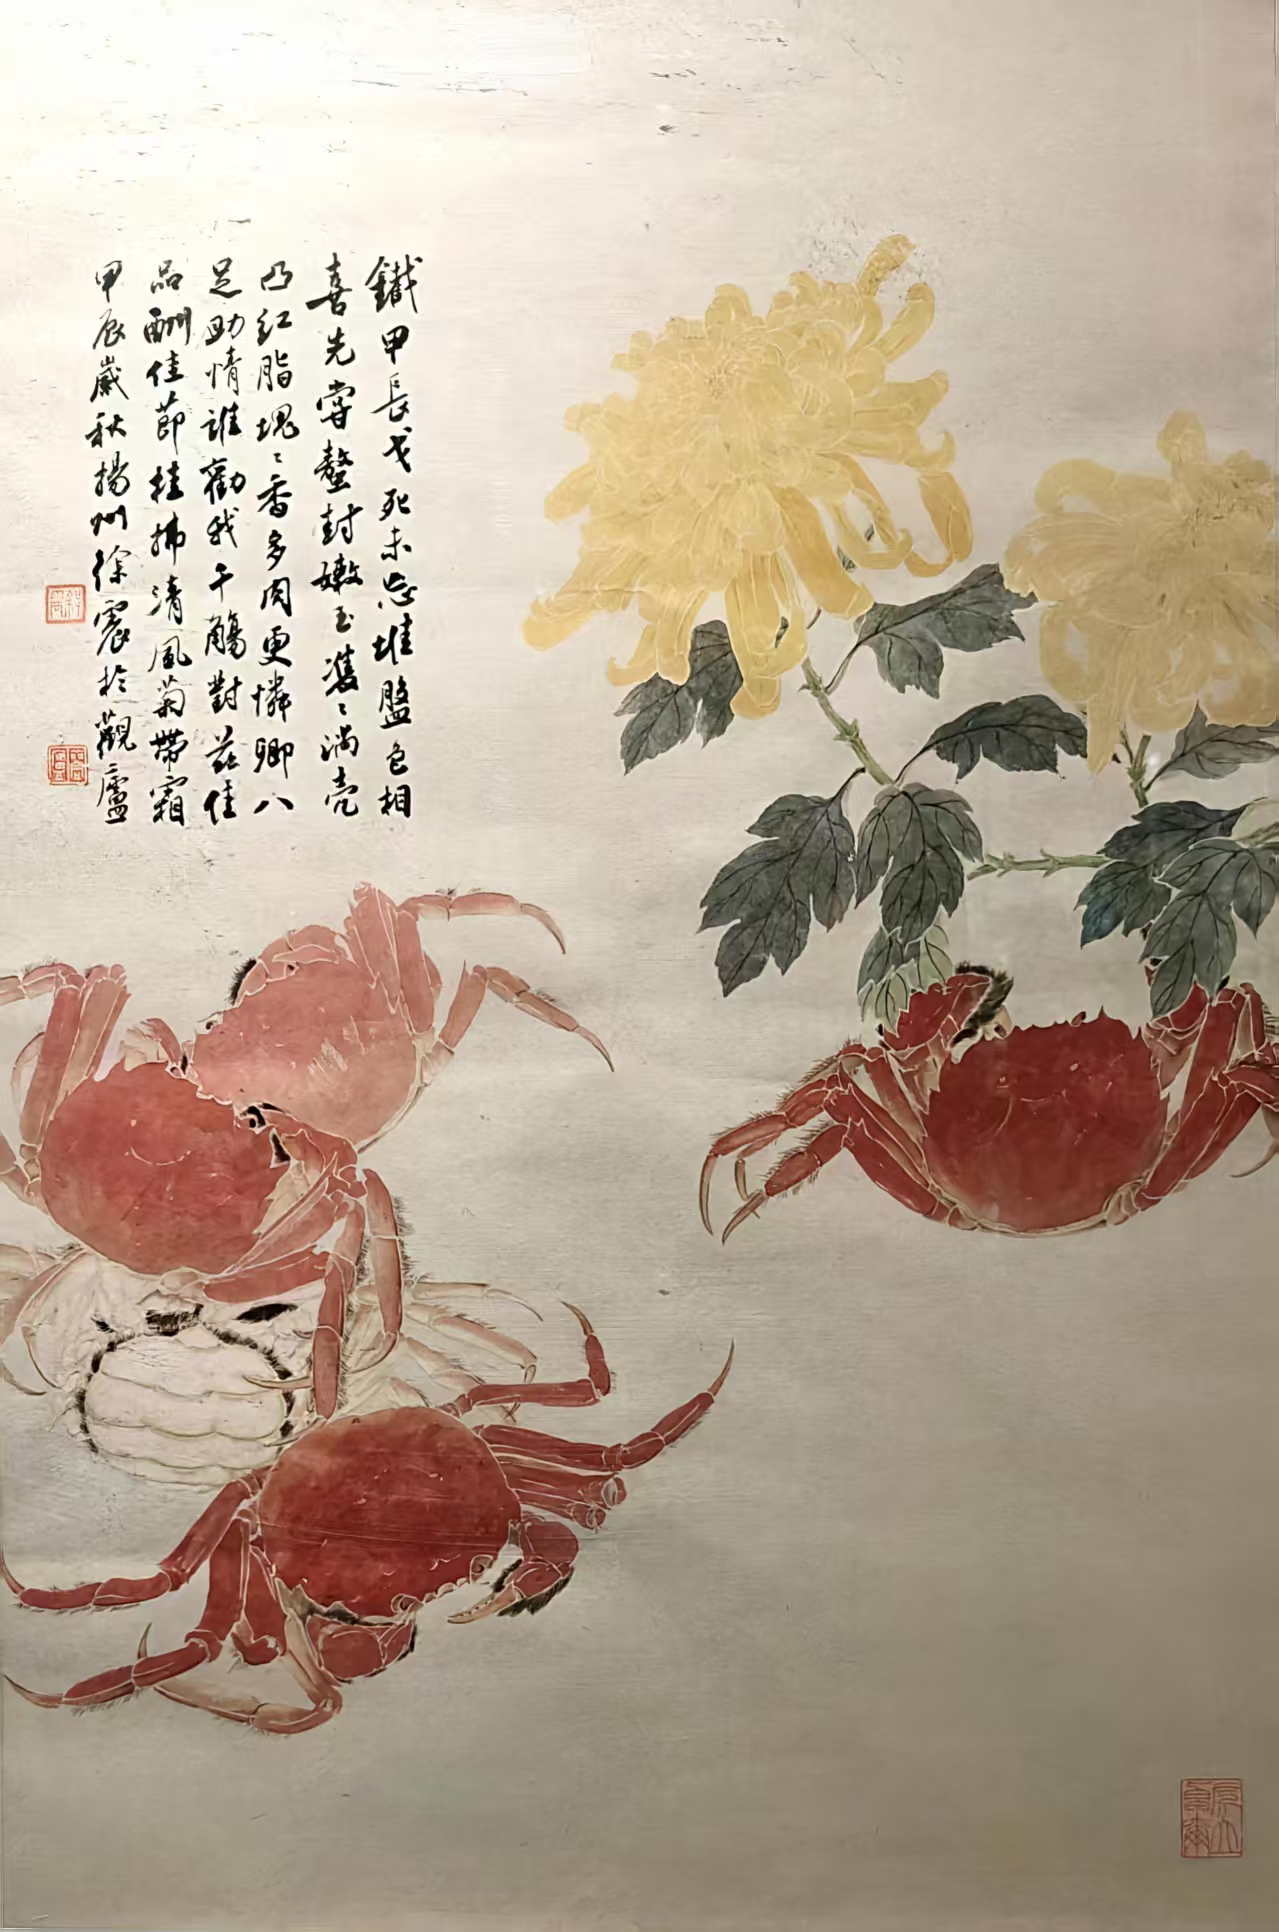 鐵甲長戈死未忘堆盤色相
喜先嘗螯封嫩玉雙〻滿壳
凸紅脂塊〻香多肉更憐卿八
足助情誰勸我千觴對茲佳
品酬佳節桂拂清風菊帶霜
甲辰歲秋揚州徐震於觀廬